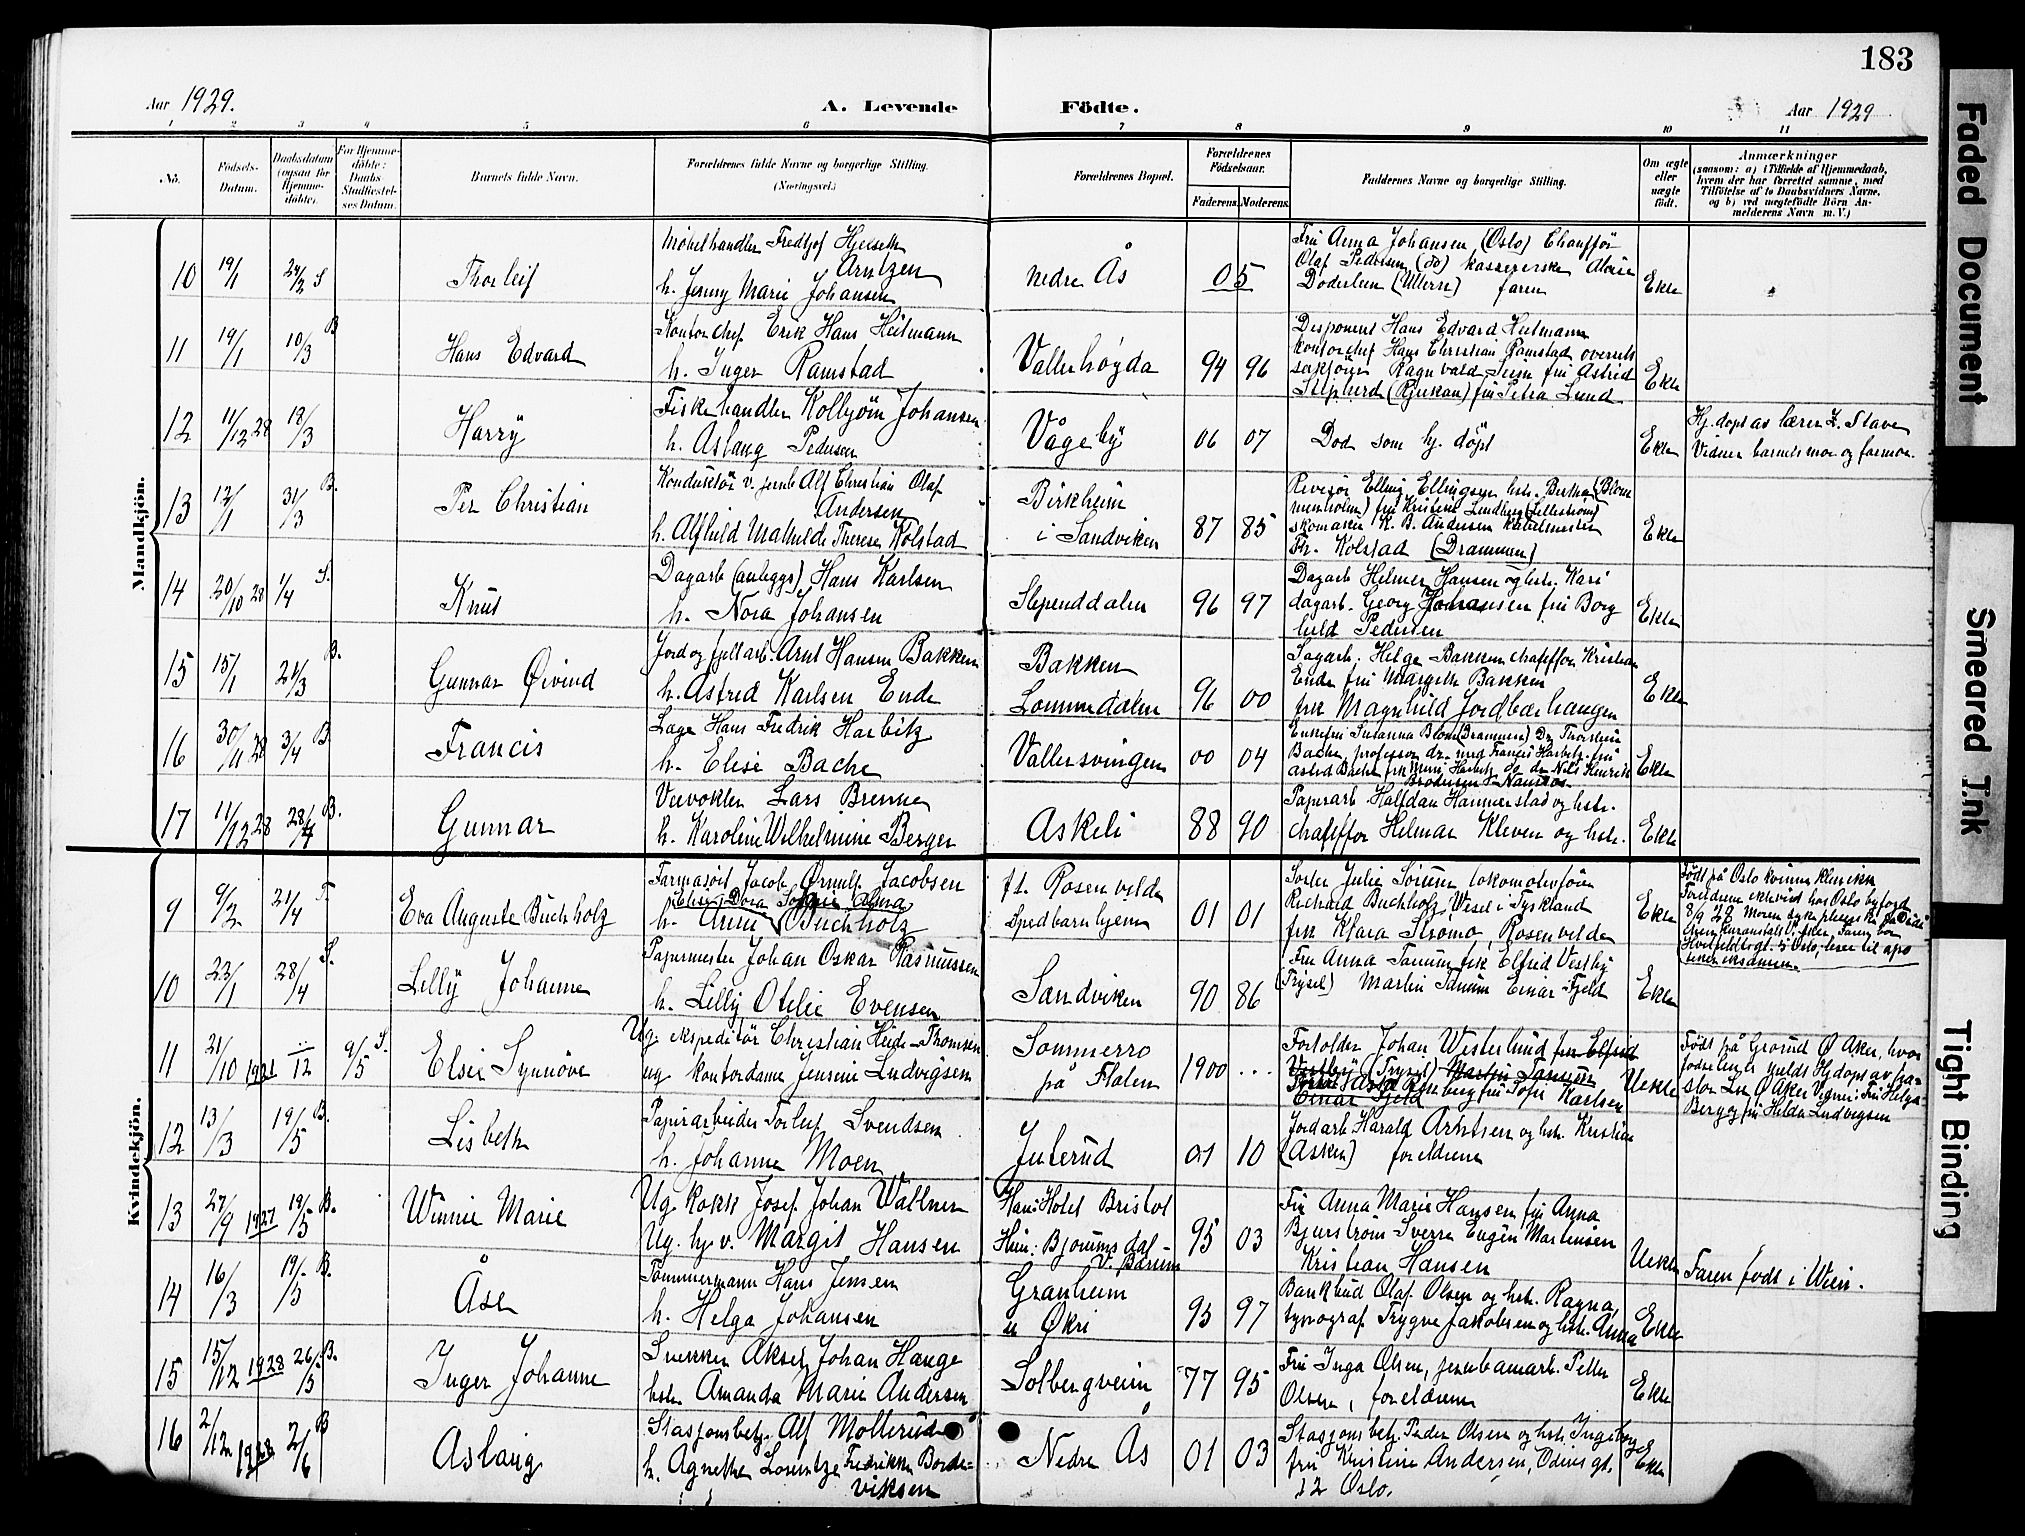 183
Aar 1929.
A. Levende
Fødte.
Aar 1929
1 2 3 4 5 6 7 8 9 10 11
No.
Fødsels-
Datum.
Daabsdatum
(ogsaa for
Hjemme-
døbte).
For Hjemme-
døbte:
Daabs
Stadfæstel-
ses Datum.
Barnets fulde Navn.
Forældrenes fulde Navne og borgerlige Stilling.
(Næringsvei.)
Forældrenes Bopæl.
Forældrenes
Fødselsaar.
Faderens. Moderens.
Faddernes Navne og borgerlige Stilling.
Om ægte
eller
uægte
født.
Anmærkninger
(saasom: a) i Tilfælde af Hjemmedaab,
hvem der har forrettet samme, med
Tilføielse af to Daabsvidners Navne,
og b) ved uægtefødte Børn An-
melderens Navn m. V.)
Mandkjön.
10 19/1 24/2 S
Thorleif
Møbelhandler Fredtjof Hjeiseth
Arntzen
h. Jenny Marie Johansen
Nedre Ås
05
Fru Anna Johansen (Oslo) Chauffør
Olaf Pedersen (do) kassererske
Døderlein (Ullern) faren
Ekte
11 19/1 10/3 B
Hans Edvard
Kontorchef Erik Hans Heitmann
h. Inger Ramstad
Vallerhøyda
94 96
Disponent Hans Edvard Heitmann
kontorchef Hans Christian Ramstad overrets
sakfører Ragnvald fru Astrid
(Rjukan) fru Petra Lund
Ekte
12 11/12 28 18/3
Harry
Fiskehandler Kolbjørn Johansen
h. Aslaug Pedersen
Vågeby
06 07
Død som hj. døpt
Ekte
Hj. døpt av lærer Z. Stave
Vidner barnets mor og farmor.
13 12/1 31/3 B.
Per Christian
Konduktør v. jernb Alf Christian Olaf
Andersen
h. Alfhild Mathilde Therese Kolstad
Birkheim
i Sandviken
87 85
Revisor Elling Ellingsen hstr. Berthe (Blom
menholm) fru Kristine Lundberg (Lillestrøm)
skomaker K. B. Andersen
Th. Kolstad (Drammen)
Ekte
14 20/10 28 1/4 S.
Knut
Dagarb (anleggs) Hans Karlsen
h. Nora Johansen
Slependdalen
96 97
Dagarb Helmer Hansen og hstr. Kari
dagarb. Georg Johansen fru Borg
hild Pedersen
Ekte
15 15/1 21/3 B.
Gunnar Øivind
Jord og fjellarb. Arnt Hansen Bakken
h. Astrid Karlsen Ende
Bakken
Lommedalen
96 00
Sagarb. Helge Bakken chauffør Kristian
Ende fru Margith Bakken
frk Magnhild Jordbærhaugen
Ekte
16 30/11 28 3/4 B
Francis
Læge Hans Fredrik Harbitz
h. Elise Bache
Vallersvingen
00 04
Enkefru Susanna Blom (Drammen) Dr Thorstein
Bache, professor dr. med Francis Harbitz. fru
Astrid Bache frk Harbitz og dr. Nils Henrik
Brodersen Namsos
Ekte
17 11/12 28 28/4 B.
Gunnar
Veivokter Lars Brenne
h. Karoline Wilhelmine Berger
Askeli
88 90
Papirarb Halfdan Hammerstad og hstr.
chauffør Helmar Kleven og hstr.
Ekte
Kvindekjön.
9 9/2 21/4 T.
Eva Auguste Buchholz
Farmasøit Jacob Ørnulf Jacobsen
Elise Dora Sofie Anna
h. Anni Buchholz
f.t. Rosenvilde
spedbarnhjem
01 01
Søster Julie Sørum lokomotivfører
Richard Buchholz, Wesel i Tyskland
frk Klara Strømø, Rosenvilde
Ekte
Født på Oslo kvinneklinikk
Foreldrene ekteviet hos Oslo byfogd
8/9 28 Moren
i Oslo, leser til apo
tekereksamen
10 23/1 28/4 S.
Lilly Johanne
Papirmester Johan Oskar Rasmussen
h. Lilly Otelie Evensen
Sandviken
90 86
Fru Anna Sanum frk Elfrid Vestby
(Trysel) Martin Sanum Einar Fjeld
Ekte
11 21/10 1921 ../12 9/5 S.
Elsie Synnøve
Ug. ekspeditør Christian Heide-Thomsen
ug kontordame Jensine Ludvigsen
Sommerro
på Fløten
1900 ...
Fortolder Johan Westerlund frk Elfrid
Vestby (Trysel) Martin Sanum
Einar Fjeld
Rønberg fru Sofie Karlsen
Uekte
Født på Grorud Ø Aker, hvor
fødselen er meldt Hj.døpt av pa-
stor Lie Ø Aker Vidner: Fru Helga
Berg og fru Hilda Ludvigsen
12 13/3 19/5 B.
Lisbeth
Papirarbeider Torleif Svendsen
h. Johanne Moen
Juterud
01 10
Jordarb Harald Arntsen og hstr. Kristine
(Asker) foreldrene
13 27/9 1927 19/5 B.
Winnie Marie
Ug. Kokk Josef Johan Wallner
Ug. hj. v. Margit Hansen
Han: Hotel Bristol
Hun: Bjørumsdal
V. Bærum
95 03
Fru Anna Marie Hansen fru Anna
Bjurstrøm Sverre Eugen Martinsen
Kristian Hansen
Uekte
Faren født i Wien.
14 16/3 19/5 B.
Åse
Tømmermann Hans Jensen
h. Helga Johansen
Granheim
n Økri
95 97
Bankbud Olaf Olsen og hstr. Ragna,
typograf Trygve Jakobsen og hstr. Anna
Ekte
15 15/12 1928 26/5 B.
Inger Johanne
Snekker Aksel Johan Hauge
hstr Amanda Marie Andersen
Solbergveien
77 95
Fru Inga Olsen, jernbanearb. Petter
Olsen, foreldrene
Ekte
16 2/12 1928 2/6 B
Aslaug
Stasjonsbetj. Alf Mollerud
h. Agnethe Lorentze Fredrikke Borde-
viksen
Nedre Ås
01 03
Stasjonsbetj. Peder Olsen og hstr. Ingeborg
fru Kristine Andersen, Odins gt.
12 Oslo.
Ekte
Faded Document
Smeared Ink
Tight Binding